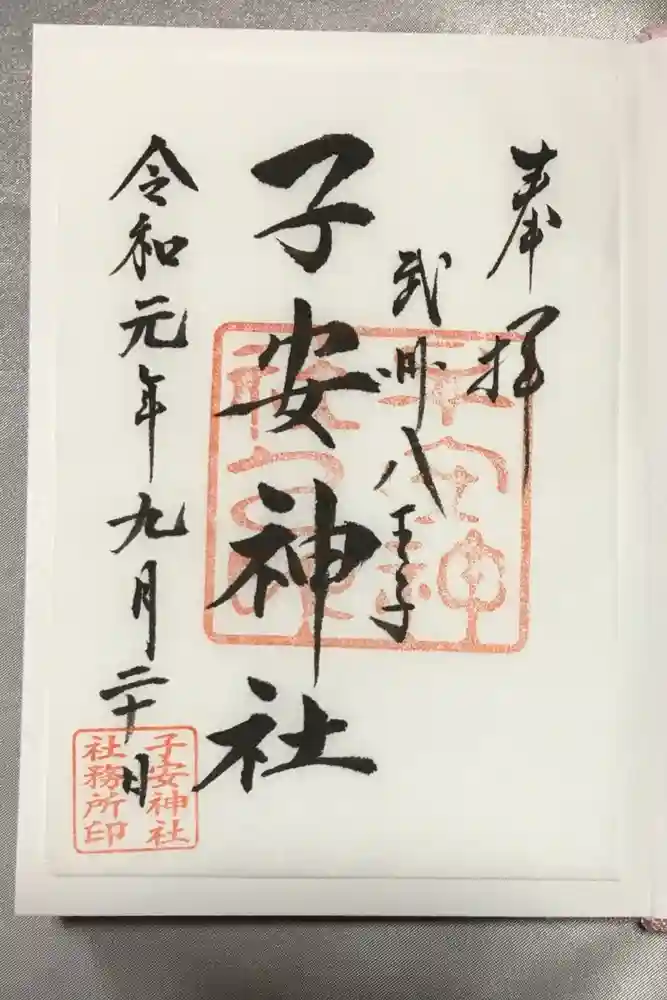 奉拝
武州八王子
子安神社
令和元年九月二十日
子安神
社宮印
子安神社
社務所印